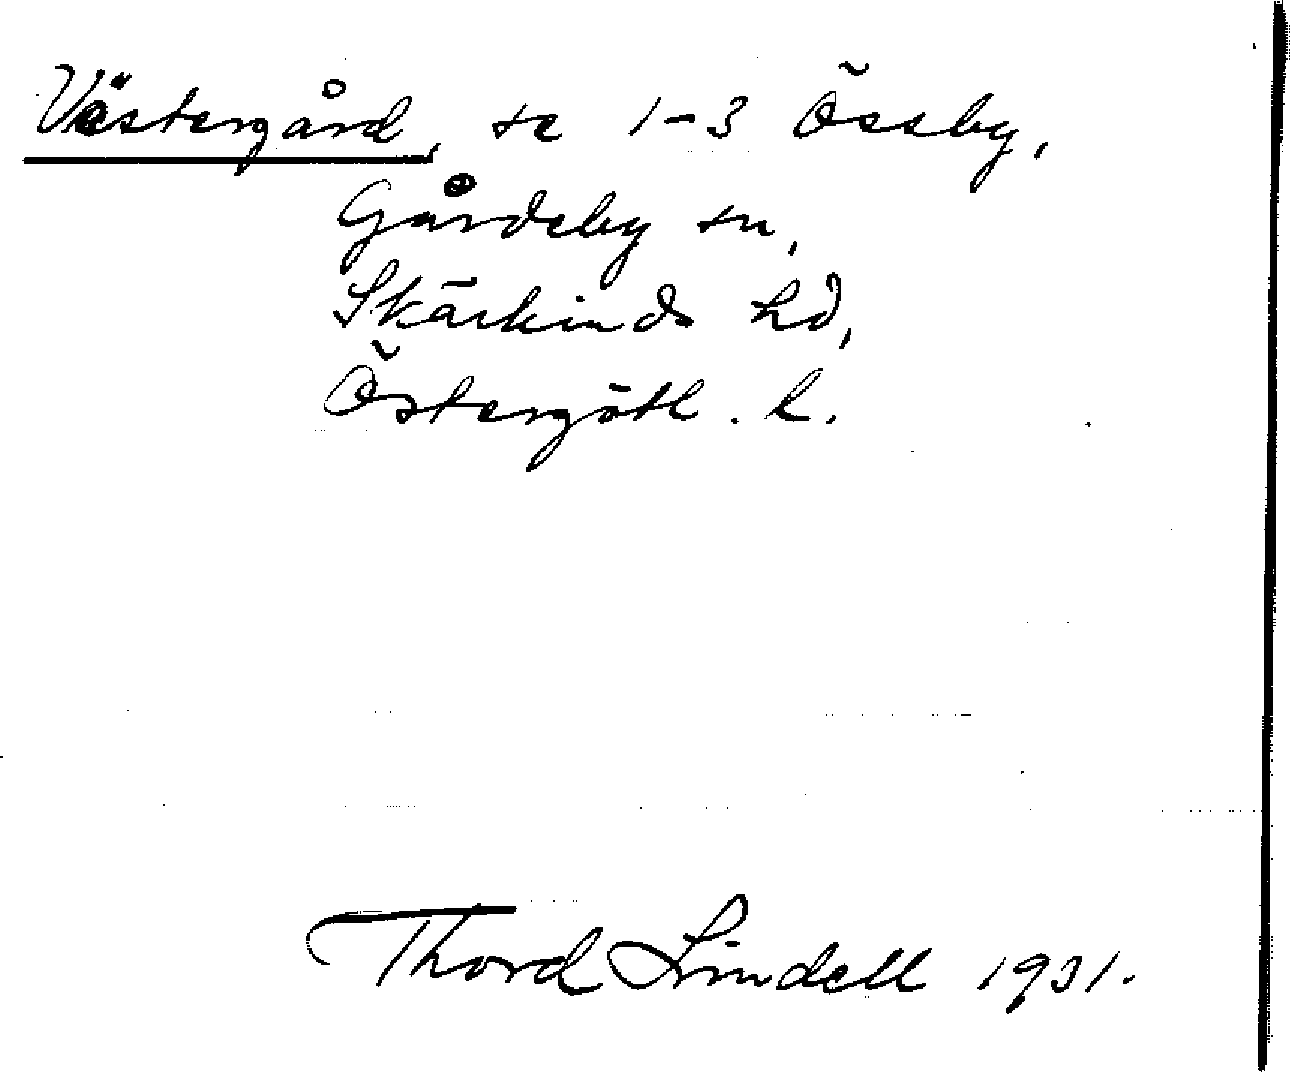 Västergård, se 1-3 Össby,
Gårdeby sn,
Skärkinds hd,
Östergötl. l.
Thord Lindell 1931.